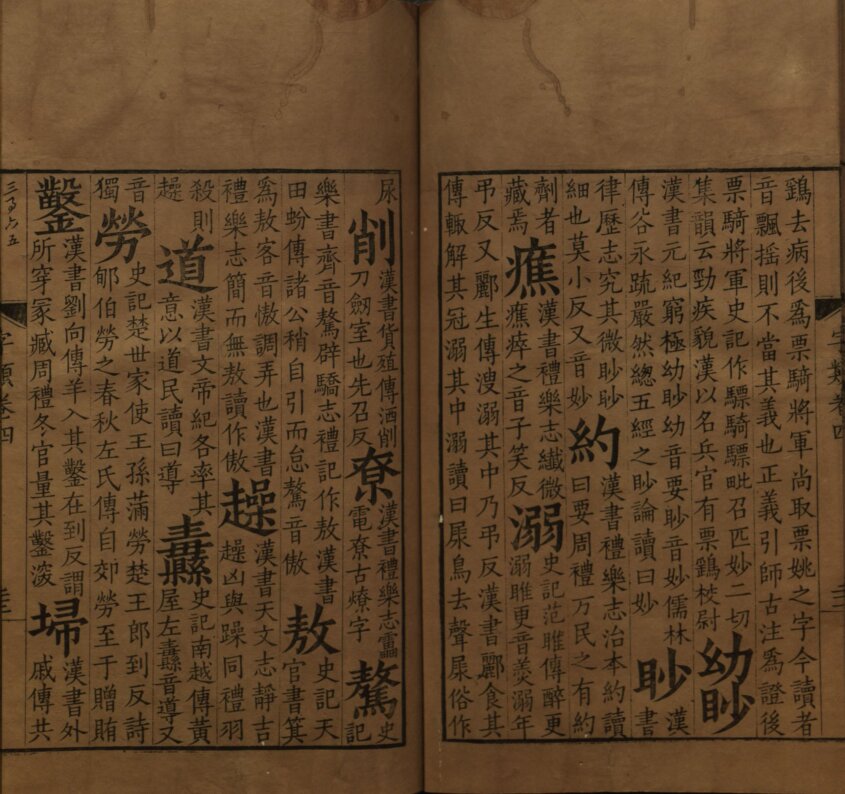 鷂去病後爲票騎將軍尚取票姚之字今讀者
音飄搖則不當其義也正義引師古注爲證後
票騎將軍史記作驃騎驃毗召匹妙二切
集韻云勁疾貌漢以名兵官有票鷂校尉
幼眇
漢書元紀窮極幼眇幼音要眇音妙儒林
傳谷永疏嚴然總五經之眇論讀曰妙
眇
漢
書
律歷志究其微眇眇
細也莫小反又音妙
約
漢書禮樂志治本約讀
曰要周禮萬民之有約
劑者
藏焉
癄
漢書禮樂志纖微
癄瘁之音子笑反
溺
史記范睢傳醉更
溺睢更音羮溺年
弔反又酈生傳溲溺其中乃弔反漢書酈食其
傳輙解其冠溺其中溺讀曰尿鳥去聲屎俗作
尿
削
漢書貨殖傳洒削
刀劒室也先召反
尞
漢書禮樂志靁
電尞古燎字
驁
史
記
樂書齊音驁辟驕志禮記作敖漢書
田蚡傳諸公稍自引而怠驁音傲
敖
史記天
官書箕
爲敖客音傲調弄也漢書
禮樂志簡而無敖讀作傲
趮
漢書天文志靜吉
趮凶與躁同禮羽
殺則
趮
道
漢書文帝紀各率其
意以道民讀曰導
纛
史記南越傳黃
屋左纛音導又
音
獨
勞
史記楚世家使王孫滿勞楚王郎到反詩
郇伯勞之春秋左氏傳自郊勞至于贈賄
鑿
漢書劉向傳羊入其鑿在到反謂
所穿冢臧周禮冬官量其鑿深
埽
漢書外
戚傳共
字類卷四
字類卷四